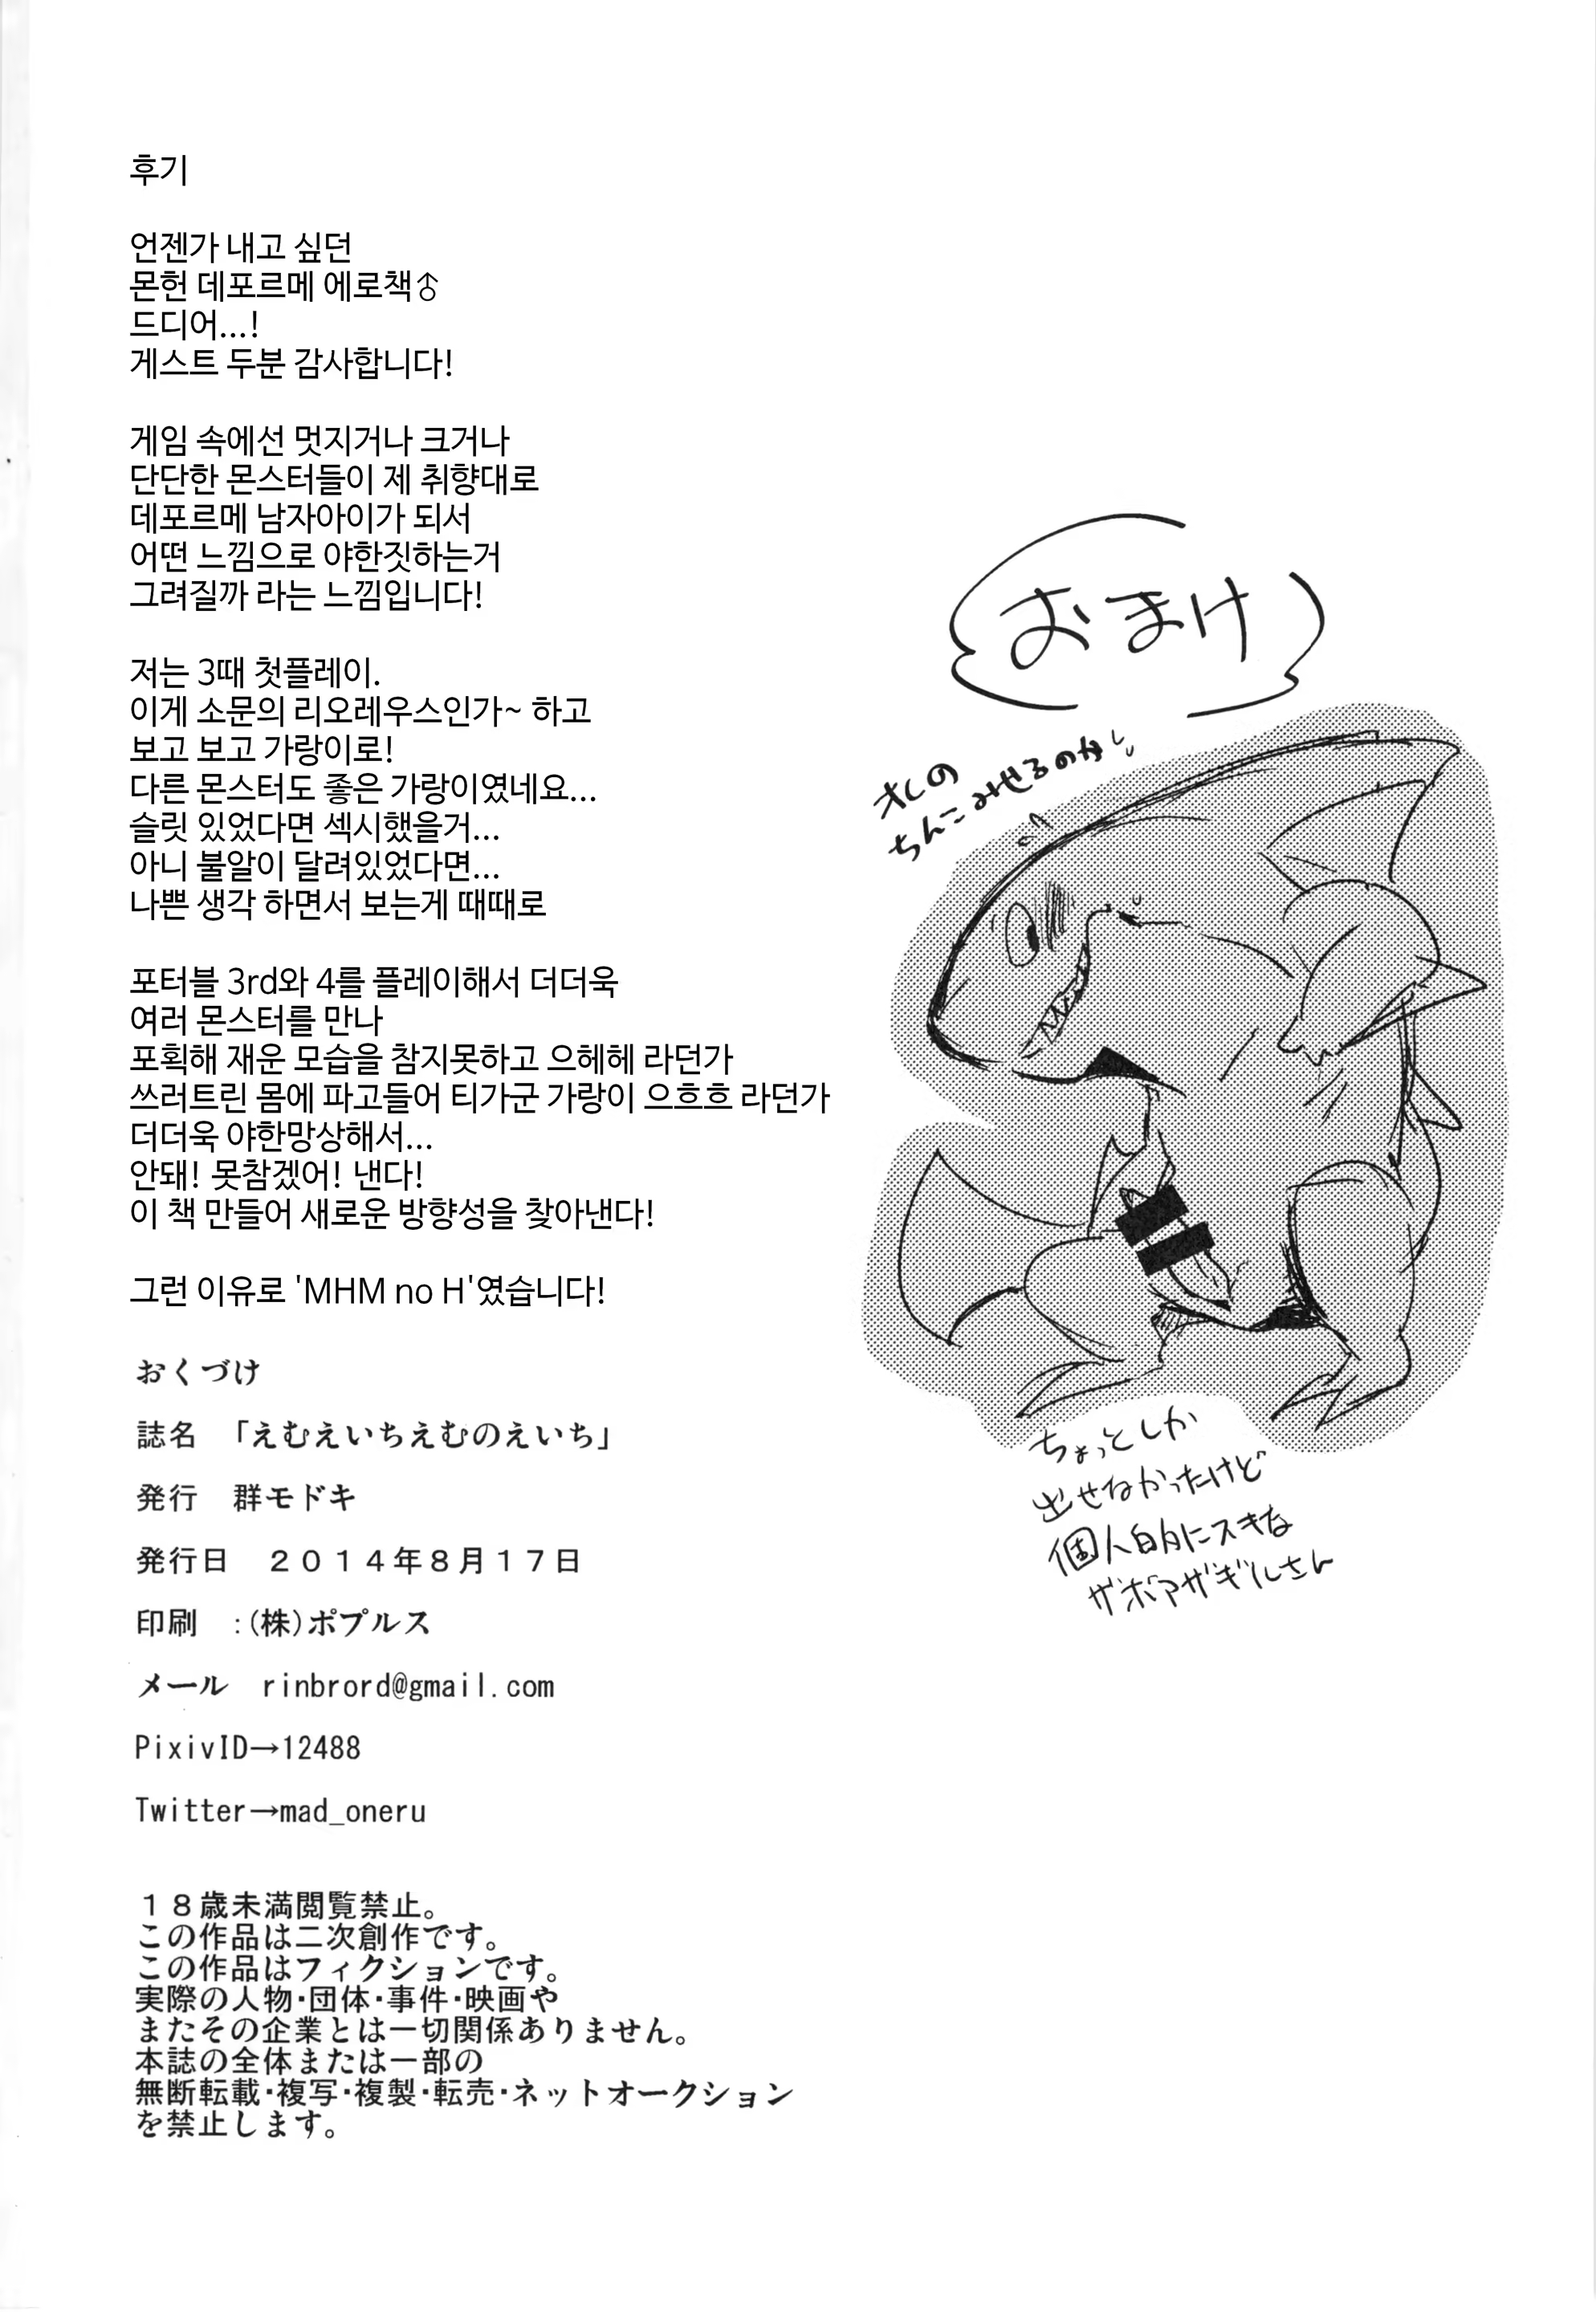 후기
언젠가 내고 싶던
몬헌 데포르메 에로책♂
드디어...!
게스트 두분 감사합니다!
게임 속에선 멋지거나 크거나
단단한 몬스터들이 제 취향대로
데포르메 남자아이가 되서
어떤 느낌으로 야한짓하는거
그려질까 라는 느낌입니다!
저는 3때 첫플레이.
이게 소문의 리오레우스인가~ 하고
보고 보고 가랑이로!
다른 몬스터도 좋은 가랑이였네요...
슬릿 있었다면 섹시했을거...
아니 불알이 달려있었다면...
나쁜 생각 하면서 보는게 때때로
포터블 3rd와 4를 플레이해서 더더욱
여러 몬스터를 만나
포획해 재운 모습을 참지못하고 으헤헤 라던가
쓰러트린 몸에 파고들어 티가군 가랑이 으흐흐 라던가
더더욱 야한망상해서...
안돼! 못참겠어! 낸다!
이 책 만들어 새로운 방향성을 찾아낸다!
그런 이유로 'MHM no H'였습니다!
おくづけ
誌名 「えむえいちえむのえいち」
発行 群モドキ
発行日 2014年8月17日
印刷 :(株)ポプルス
メール rinbrord@gmail.com
PixivID→12488
Twitter→mad_oneru
18歳未満閲覧禁止。
この作品は二次創作です。
この作品はフィクションです。
実際の人物・団体・事件・映画や
またその企業とは一切関係ありません。
本誌の全体または一部の
無断転載・複写・複製・転売・ネットオークション
を禁止します。
おまけ
オレの
ちんこみせるのか
ちょっとしか
出せなかったけど
個人的にスキな
ザボアザギルさん